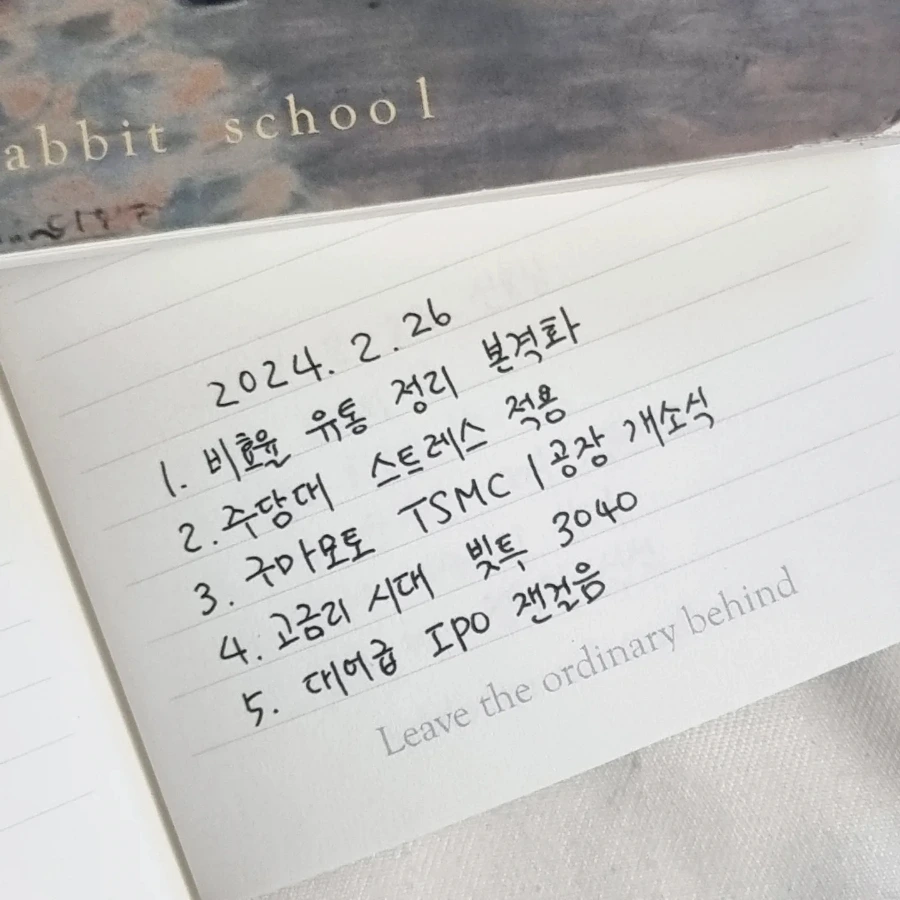 abbit school
2024. 2. 26
1. 비효율 유통 정리 본격화
2. 주담대 스트레스 적용
3. 구마모토 TSMC 1공장 개소식
4. 고금리 시대 빚투 3040
5. 대어급 IPO 잰걸음
Leave the ordinary behind